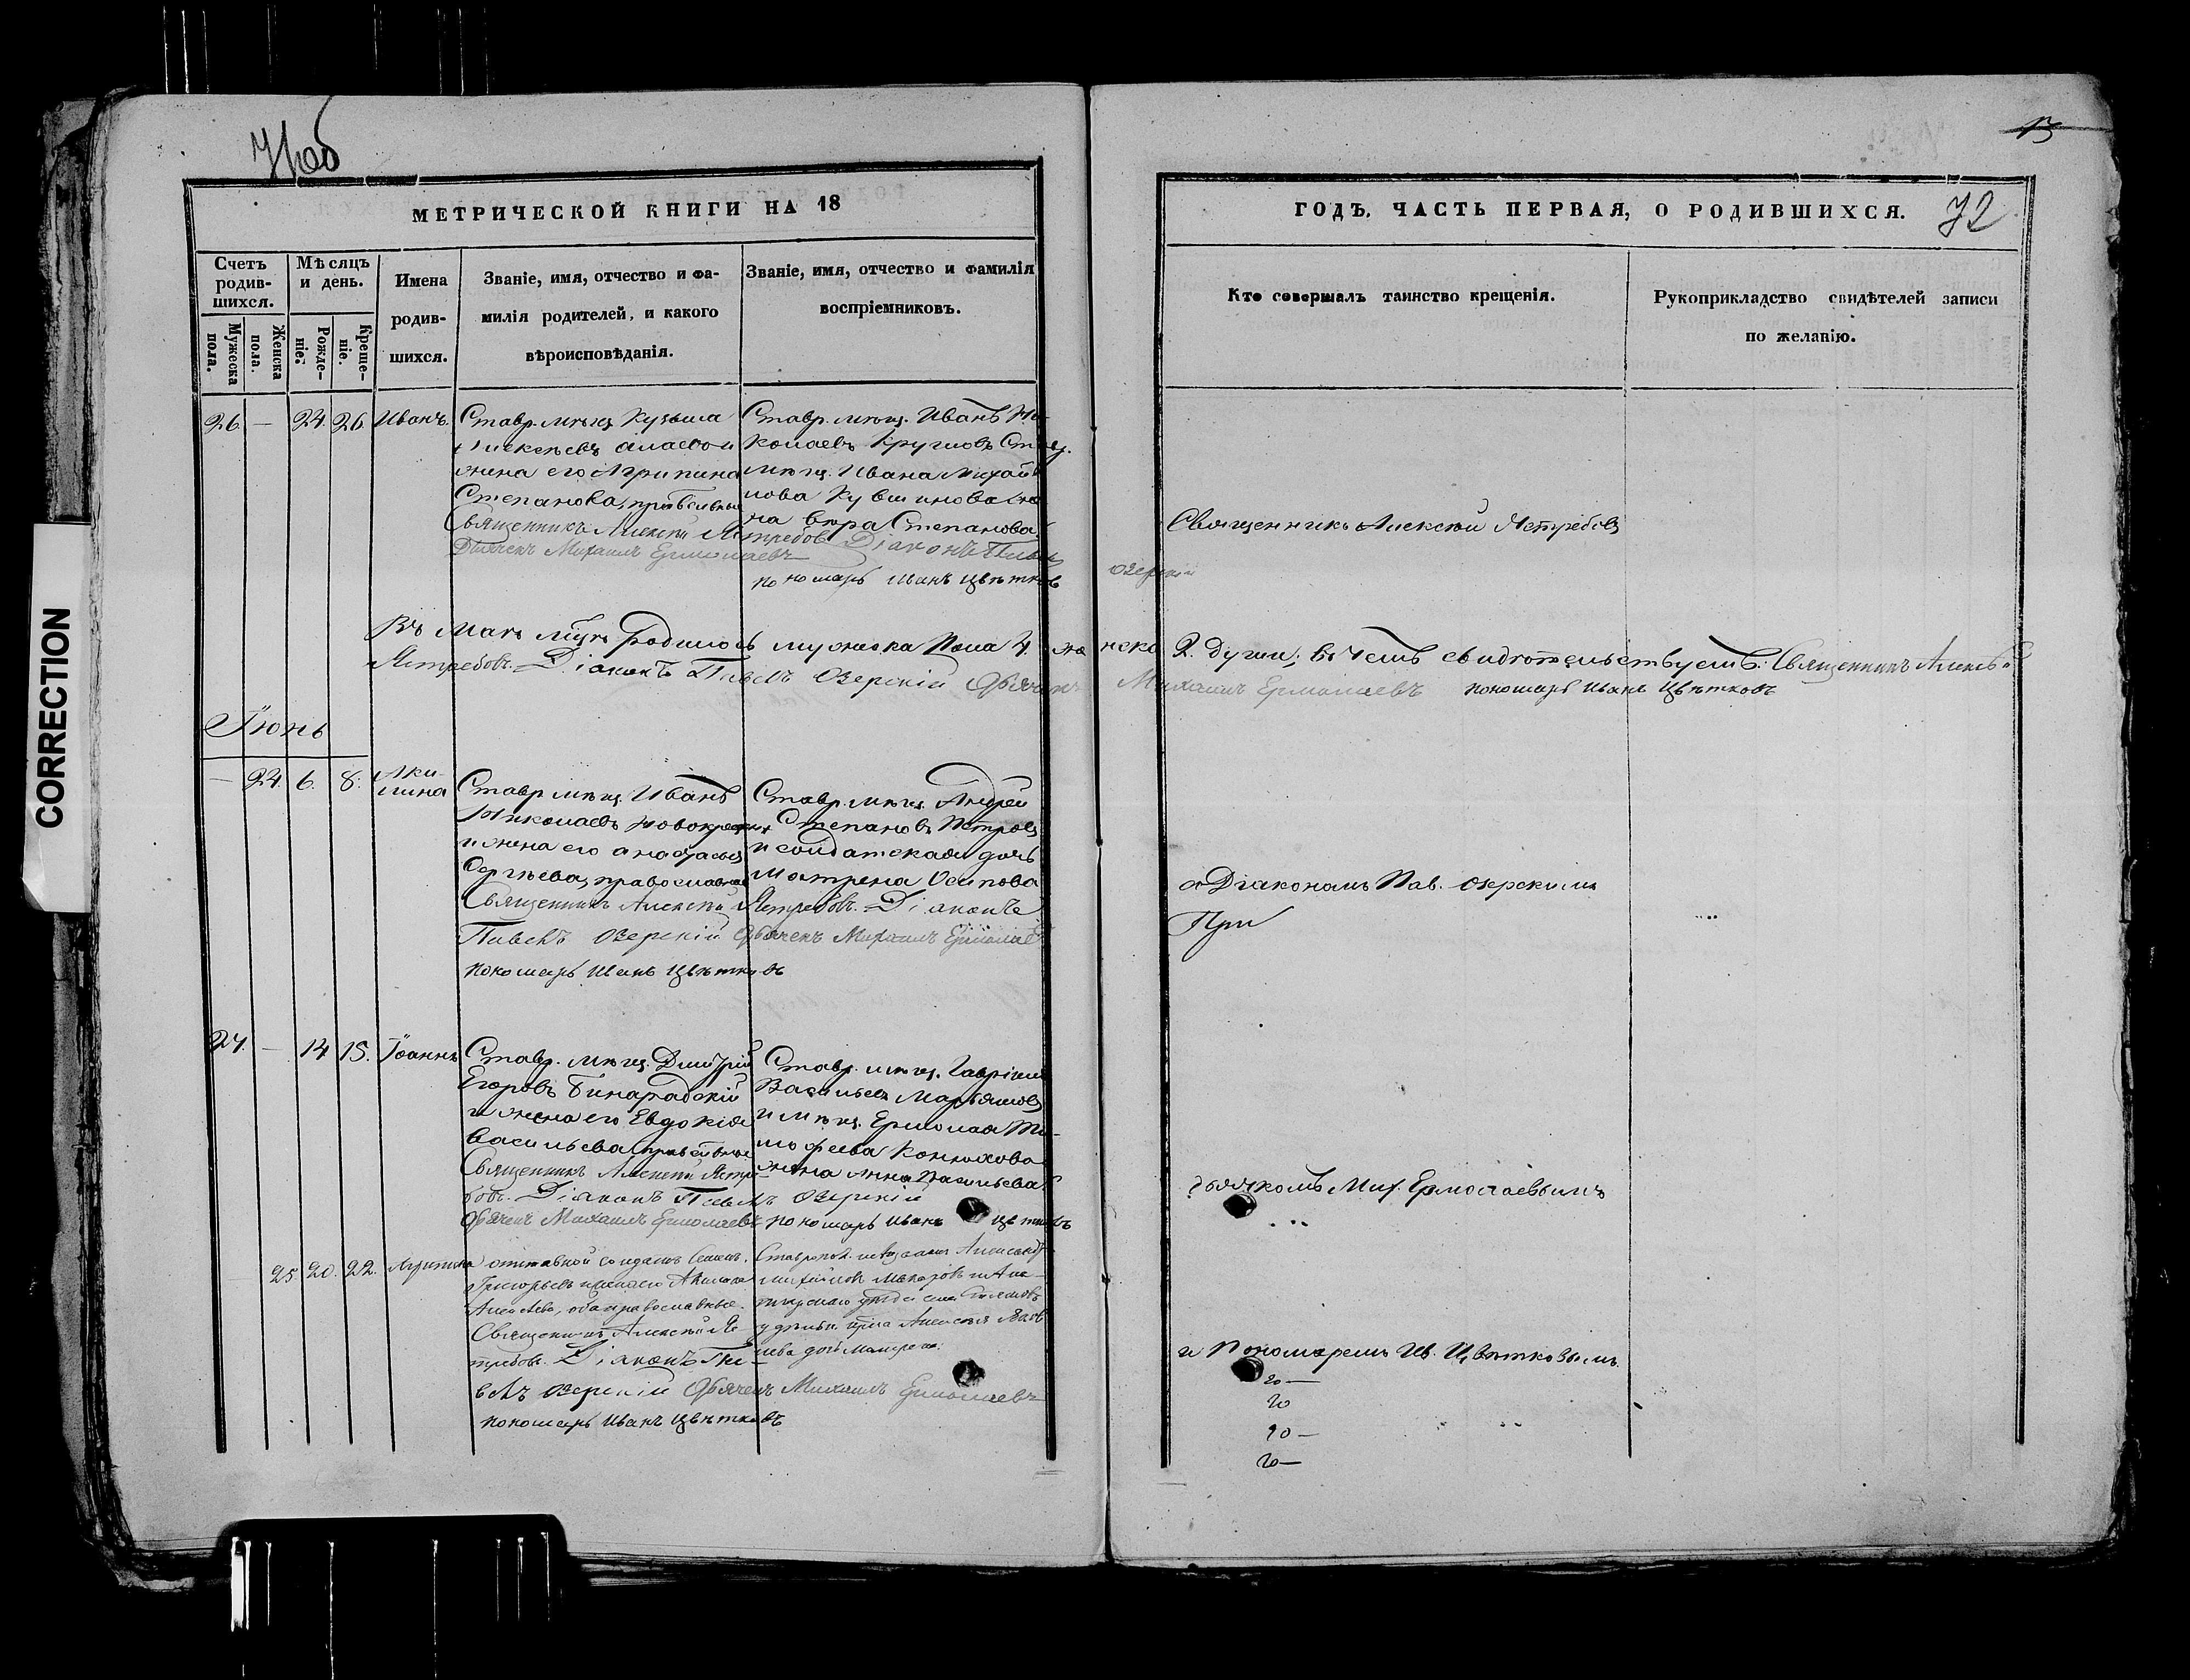 71об
МЕТРИЧЕСКОЙ КНИГИ НА 18
Счетъ родив-шихся.
Мѣсяцъ и день.
Имена родив-шихся.
Званіе, имя, отчество и фа-
милія родителей, и какого
вѣроисповѣданія.
Званіе, имя, отчество и фамилія
воспріемниковъ.
Мужеска пола.
Женска пола.
Рожде-ніе.
Креще-ніе.
26 — 24. 26. Иванъ.
Ставр. мѣщ. Кузьма
Алексѣевъ
жена его Агрипина
Степанова,
Священникъ Алексѣй Ястребовъ Діаконъ Павелъ
Дьячекъ Михаилъ Ермолаевъ
Озерскій
Ставр. мѣщ. Иванъ Ни-
колаевъ Кругловъ Ставр.
мѣщ. Ивана Михай
лова Кувшинова же
на Вѣра Степанова
пономарь Иванъ Цвѣтковъ
Въ Маѣ мѣцѣ родилось мужеска пола 4. женска 2. души; въ чемъ свидѣтельствуемъ: Священникъ Алексѣй
Ястребовъ. Діаконъ Павелъ Озерскій Дьячекъ Михаилъ Ермолаевъ пономарь Иванъ Цвѣтковъ
Іюнь
— 24. 6. 8. Аки-
лина
Ставр. мѣщ. Иванъ
Николаевъ
и жена его Анастасья
Сергѣева, православные
Священникъ Алексѣй Ястребовъ. Діаконъ
Павелъ Озерскій Дьячекъ Михаилъ Ермолаев
пономарь Иванъ Цвѣтковъ
Ставр. мѣщ. Андрей
Степановъ Петровъ
и солдатская дочь
Матрена Осипова
27. — 14 15. Іоаннъ
Ставр. мѣщ. Дмитрій
Егоровъ Бинарадскій
и жена его Евдокія
Васильева
Священникъ Алексѣй Ястре-
бовъ. Діаконъ Павелъ Озерскій
Дьячекъ Михаилъ Ермолаевъ пономарь Иванъ Цвѣтковъ
Ставр. мѣщ. Гавріилъ
Васильевъ
и мѣщ. Ермолая Ти-
мофеева Конюхова
жена Анна Васильева
25. 20. 22.
отставной солдатъ Семенъ
Григорьевъ
оба православные.
Священникъ Алексѣй Яс
требовъ. Діаконъ Па-
велъ Озерскій Дьячекъ Михаилъ Ермолаевъ
пономарь Иванъ Цвѣтковъ
Макаровъ
дочь Матрена
13
ГОДЪ. ЧАСТЬ ПЕРВАЯ, О РОДИВШИХСЯ.
72
Кто совершалъ таинство крещенія.
Рукоприкладство свидѣтелей записи
по желанію.
Священникъ Алексѣй Ястребовъ
съ Діакономъ Пав. Озерскимъ
При
дьячкомъ Мих. Ермолаевымъ
и Пономаремъ Ив. Цвѣтковымъ.
20 —
20
20 —
20 —
CORRECTION